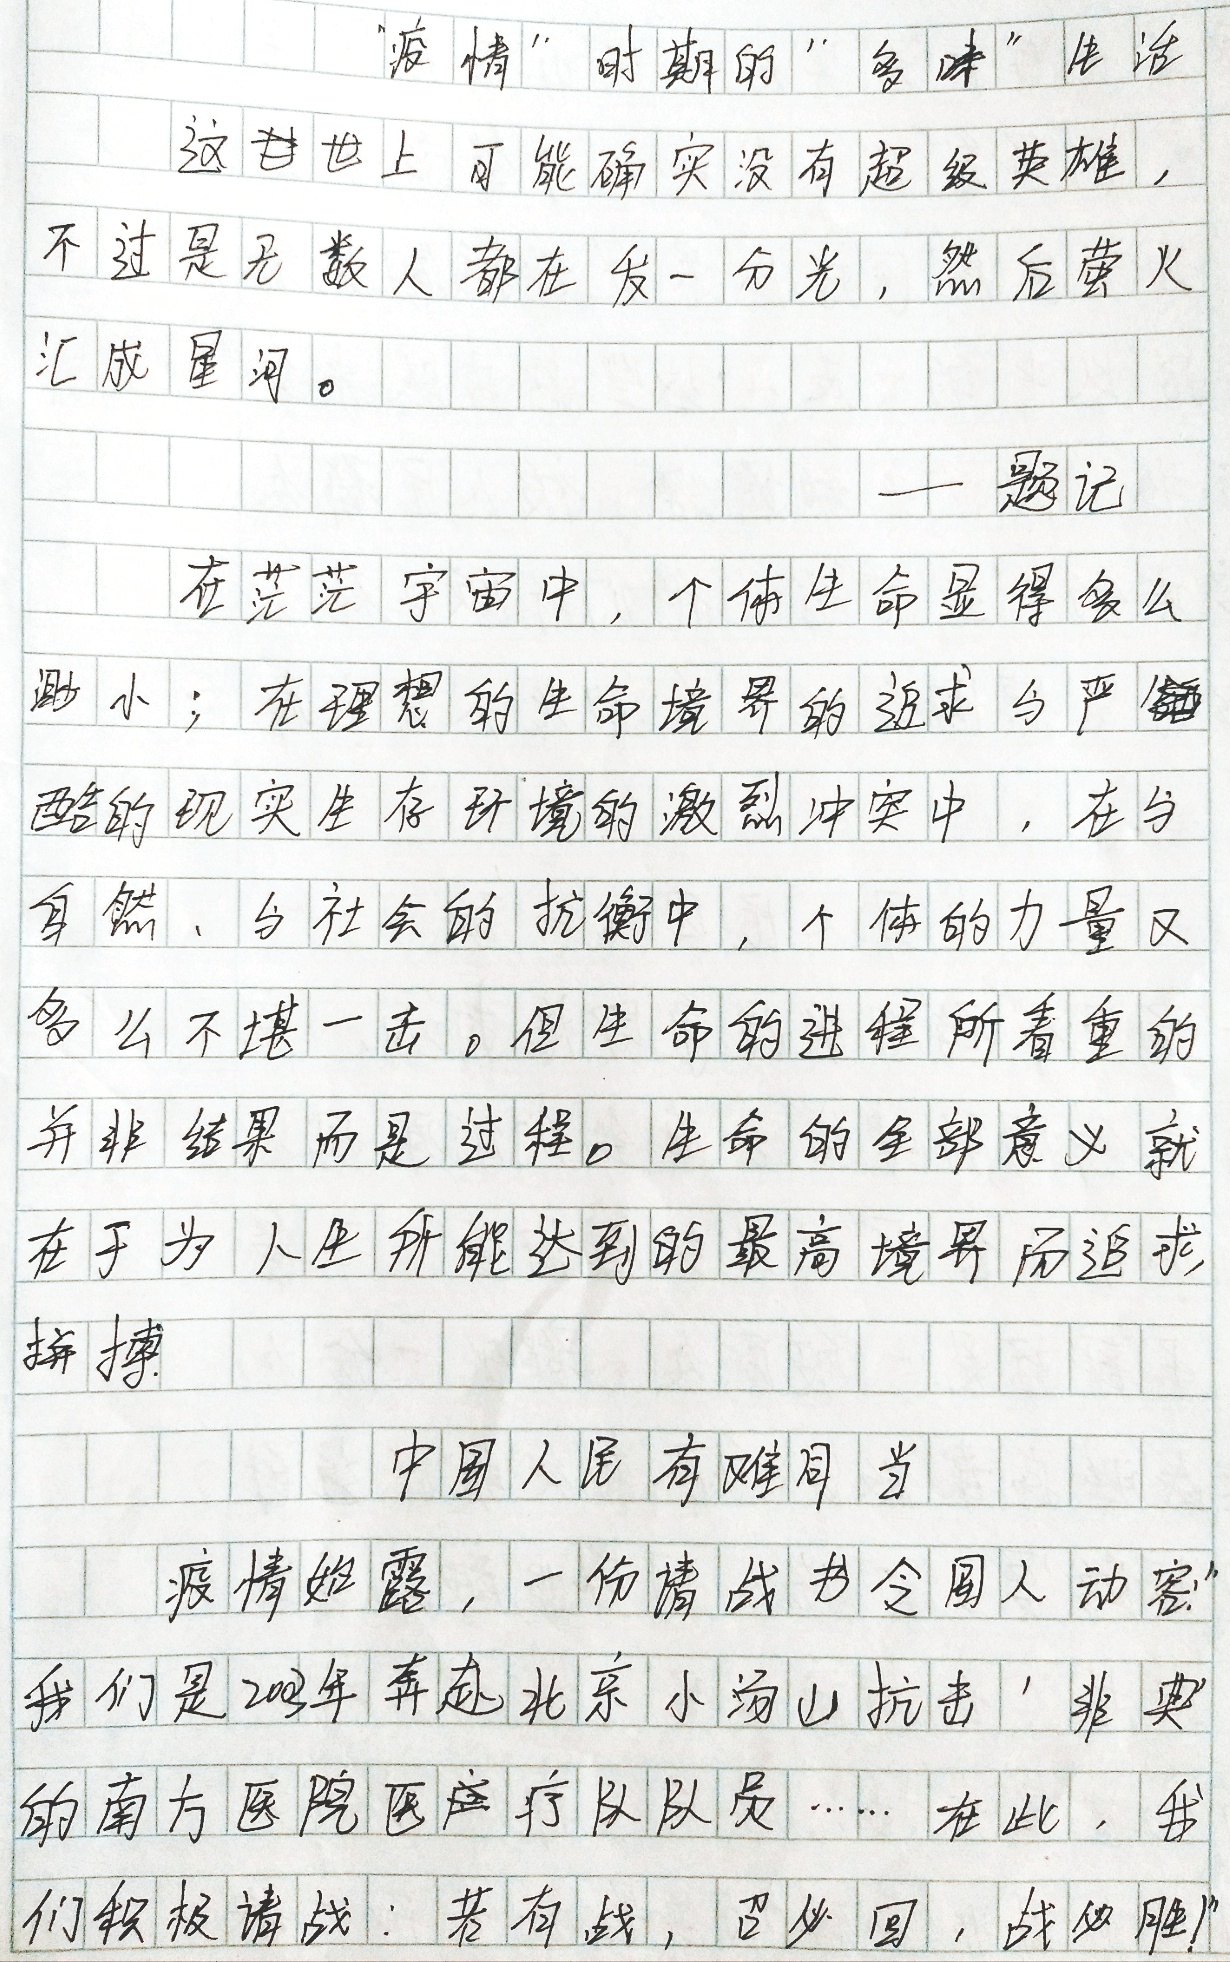 “疫情”时期的“多味”生活
这世上可能确实没有超级英雄，
不过是无数人都在发一分光，然后萤火
汇成星河。
——题记
在茫茫宇宙中，个体生命显得多么
渺小；在理想的生命境界的追求与严
酷的现实生存环境的激烈冲突中，在与
自然、与社会的抗衡中，个体的力量又
多么不堪一击。但生命的进程所看重的
并非结果而是过程。生命的全部意义就
在于为人生所能达到的最高境界而追求，
拼搏.
中国人民有难自当
疫情始露，一份请战书令国人动容：“
我们是2003年奔赴北京小汤山抗击‘非典’
的南方医院医疗队队员……在此，我
们积极请战：若有战，召必回，战必胜！”